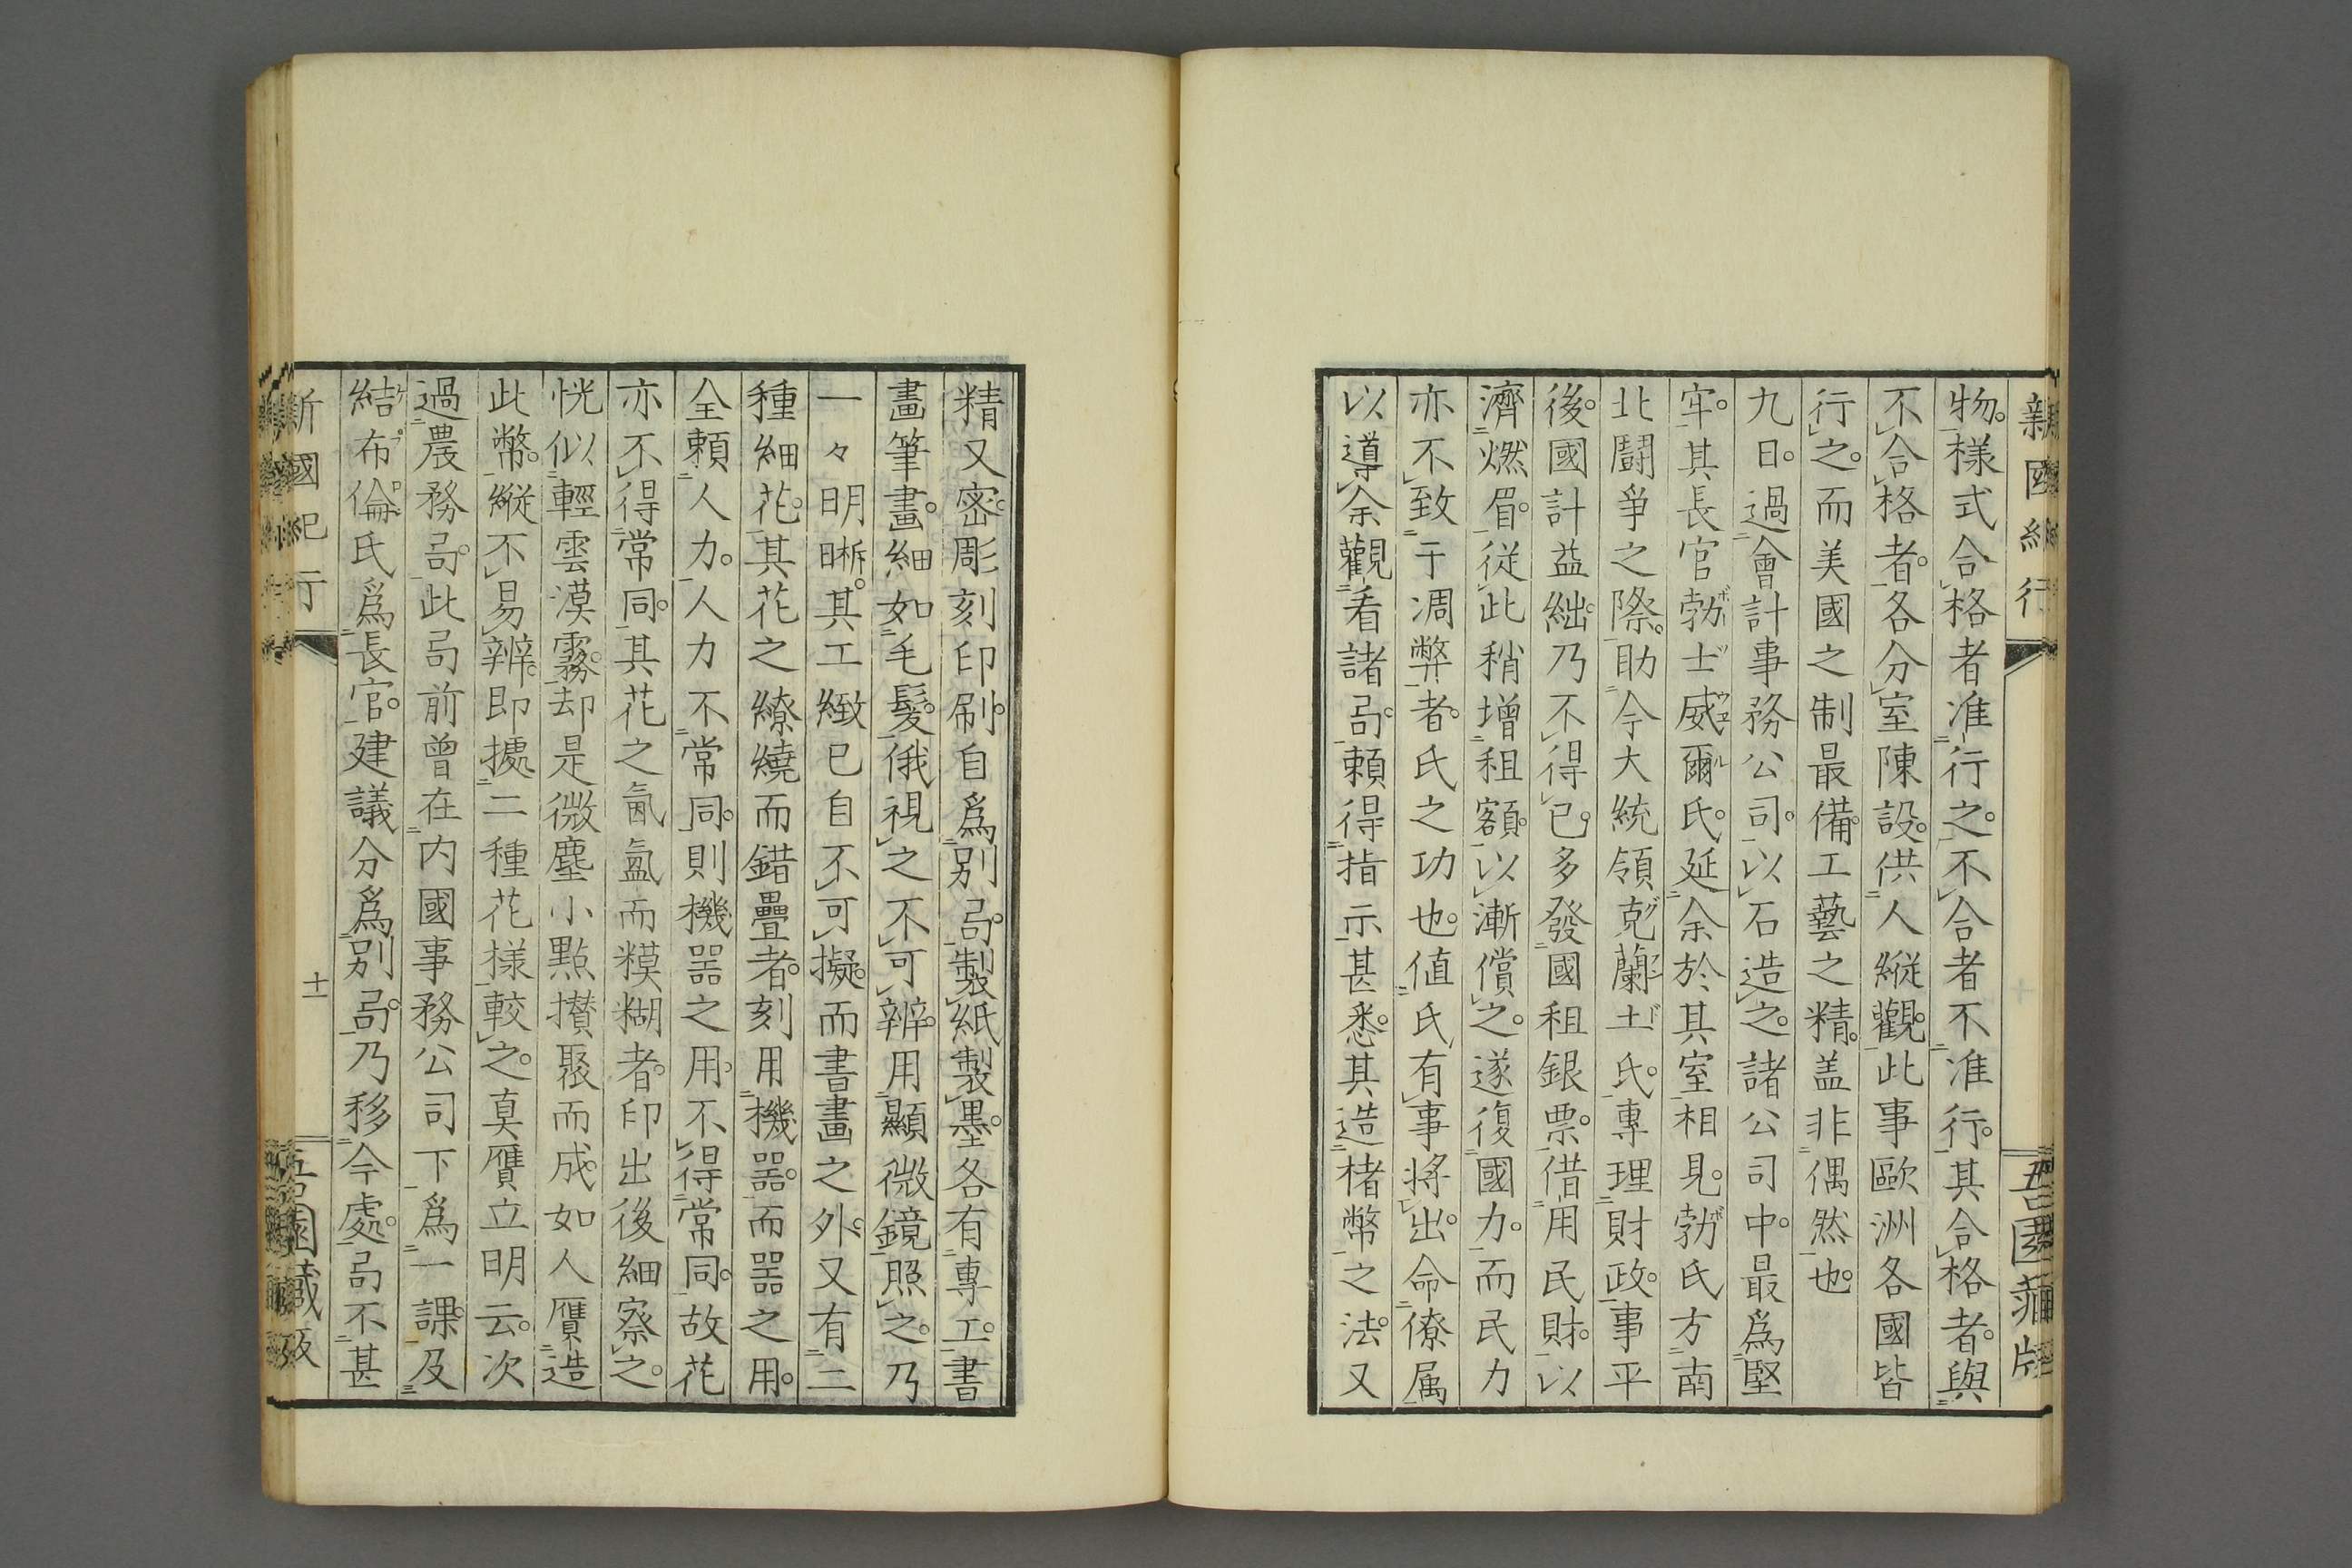 新國紀行
吾園藏版
物。様式合格者准行之。不合者不准行。其合格者。與
不合格者。各分室陳設。供人縱觀。此事歐洲各國皆
行之。而美國之制最備。工藝之精。盖非偶然也。
九日。過會計事務公司。以石造之。諸公司中。最爲堅
牢。其長官勃士威爾氏。延余於其室相見。勃氏方南
北鬪爭之際。助今大統領克蘭土氏。專理財政。事平
後。國計益絀。乃不得已。多發國租銀票。借用民財。以
濟燃眉。從此稍增租額。以漸償之。遂復國力。而民力
亦不致于凋弊者。氏之功也。値氏有事將出。命僚属
以導余觀看諸局。頼得指示甚悉。其造楮幣之法。又
精又密。彫刻印刷。自爲別局。製紙製墨。各有專工。書
畫筆畫。細如毛髮。俄視之不可辨。用顯微鏡照之。乃
一々明晰。其工緻已自不可擬。而書畫之外。又有二
種細花。其花之繚繞而錯疊者。刻用機器。而器之用。
全頼人力。人力不常同。則機器之用。不得常同。故花
亦不得常同。其花之氤氳而糢糊者。印出後細察之。
恍似輕雲漠霧。却是微塵小點攅聚而成。如人贋造
此幣。縱不易辨。即據二種花樣較之。真贋立明云。次
過農務局。此局前曾在内國事務公司下。爲一課。及
結布倫氏爲長官。建議分爲別局。乃移今處。局不甚
新國紀行
十一
吾園藏版